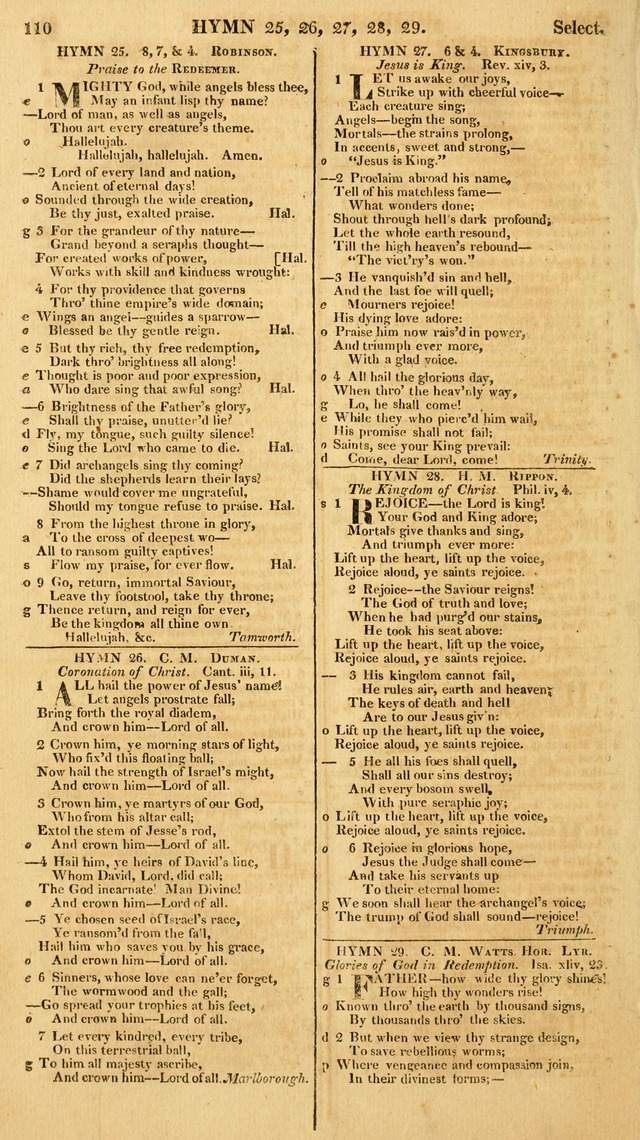 110 HYMN 25, 26, 27, 28, 29. Select.
HYMN 25. 8, 7, & 4. ROBINSON.
Praise to the REDEEMER.
1 MIGHTY God, while angels bless thee,
e May an infant lisp thy name?
—Lord of man, as well as angels,
Thou art every creature's theme.
o Hallelujah.
Hallelujah, hallelujah. Amen.
—2 Lord of every land and nation,
Ancient of eternal days!
o Sounded through the wide creation,
Be thy just, exalted praise. Hal.
g 3 For the grandeur of thy nature—
Grand beyond a seraphs thought—
For created works of power, [Hal.
Works with skill and kindness wrought:
4 For thy providence that governs
Thro' thine empire's wide domain;
e Wings an angel—guides a sparrow—
o Blessed be thy gentle reign. Hal.
e 5 But thy rich, thy free redemption,
Dark thro' brightness all along!
e Thought is poor and poor expression,
a Who dare sing that awful song? Hal.
—6 Brightness of the Father's glory,
e Shall thy praise, unutter'd lie?
d Fly, my tongue, such guilty silence!
o Sing the Lord who came to die. Hal.
e 7 Did archangels sing thy coming?
Did the shepherds learn their lays?
—Shame would cover me ungrateful,
Should my tongue refuse to praise. Hal.
8 From the highest throne in glory,
a To the cross of deepest wo—
All to ransom guilty captives!
s Flow my praise, for ever flow. Hal.
o 9 Go, return, immortal Saviour,
Leave thy footstool, take thy throne;
g Thence return, and reign for ever,
Be the kingdom all thine own
Hallelujah, &c. Tamworth.
HYMN 26. C. M. DUMAN.
Coronation of Christ. Cant. iii, 11.
1 ALL hail the power of Jesus' name!
Let angels prostrate fall;
Bring forth the royal diadem,
And crown him—Lord of all.
2 Crown him, ye morning stars of light,
Who fix'd this floating ball;
Now hail the strength of Israel's might,
And crown him—Lord of all.
3 Crown him, ye martyrs of our God,
Who from his altar call;
Extol the stem of Jesse's rod,
o And crown him—Lord of all.
—4 Hail him, ye heirs of David's line,
Whom David, Lord, did call;
The God incarnate! Man Divine!
o And crown him—Lord of all.
—5 Ye chosen seed of Israel's race,
Ye ransom'd from the fall,
Hail him who saves you by his grace,
o And crown him—Lord of all.
e 6 Sinners, whose love can ne'er forget,
The wormwood and the gall;
—Go spread your trophies at his feet,
o And crown him—Lord of all.
7 Let every kindred, every tribe,
On this terrestrial ball,
g To him all majesty ascribe,
And crown him—Lord of all. Marlborough.
HYMN 27. 6 & 4. KINGSBURY.
Jesus is King. Rev. xiv, 3.
1 LET us awake our joys,
Strike up with cheerful voice—
Each creature sing;
Angels—begin the song,
Mortals—the strains prolong,
In accents, sweet and strong,—
o "Jesus is King."
—2 Proclaim abroad his name,
Tell of his matchless fame—
What wonders done;
Shout through hell's dark profound;
Let the whole earth resound,
Till the high heaven's rebound—
"The vict'ry's won."
—3 He vanquish'd sin and hell,
And the last foe will quell;
e Mourners rejoice!
His dying love adore:
o Praise him now rais'd in power,
And triumph ever more,
With a glad voice.
o 4 All hail the glorious day,
When thro' the heav'nly way,
g Lo, he shall come!
e While they who pierc'd him wail,
His promise shall not fail;
o Saints, see your King prevail:
d Come, dear Lord, come! Trinity.
HYMN 28. H. M. RIPPON.
The Kingdom of Christ Phil. iv, 4.
s 1 REJOICE—the Lord is king!
Your God and King adore;
Mortals give thanks and sing,
And triumph ever more:
Lift up the heart, lift up the voice,
Rejoice aloud, ye saints rejoice.
2 Rejoice--the Saviour reigns!
The God of truth and love;
When he had purg'd our stains,
He took his seat above:
Lift up the heart, lift up the voice,
Rejoice aloud, ye saints rejoice.
— 3 His kingdom cannot fail,
He rules air, earth and heaven;
The keys of death and hell
Are to our Jesus giv'n:
o Lift up the heart, lift up the voice,
Rejoice aloud, ye saints rejoice.
— 5 He all his foes shall quell,
Shall all our sins destroy;
And every bosom swell,
With pure seraphic joy;
o Lift up the heart, lift up the voice,
Rejoice aloud, ye saints rejoice.
o 6 Rejoice in glorious hope,
Jesus the Judge shall come—
And take his servants up
To their eternal home:
g We soon shall hear the archangel's voice;
The trump of God shall sound—rejoice!
Triumph.
HYMN 29. C. M. WATTS HOR. LYR.
Glories of God in Redemption. Isa. xliv, 23.
g 1 FATHER—how wide thy glory shines!
How high thy wonders rise!
o Known thro' the earth by thousand signs,
By thousands thro' the skies.
d 2 But when we view thy strange design,
To save rebellious worms;
p Where vengeance and compassion join,
In their divinest forms;—